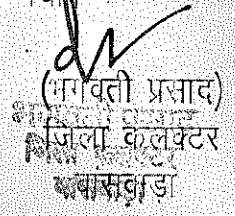 (भगवती प्रसाद)
जिला कलक्टर
बांसवाड़ा